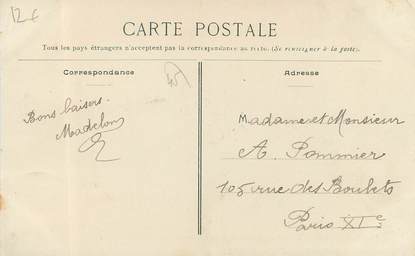 12 €
CARTE POSTALE
Tous les pays étrangers n'acceptent pas la correspondance au recto. (Se renseigner à la poste).
Correspondance
Adresse
Bons baisers.
Madelon
Madame et Monsieur
A. Pommier
105 rue des Boulets
Paris XIe